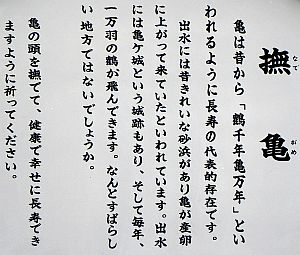 撫亀
なでがめ
亀は昔から「鶴千年亀万年」とい
われるように長寿の代表的存在です。
出水には昔きれいな砂浜があり亀が産卵
に上がって来ていたといわれています。出水
には亀ヶ城という城跡もあり、そして毎年、
一万羽の鶴が飛んできます。なんとすばらし
い地方ではないでしょうか。
亀の頭を撫でて、健康で幸せに長寿でき
ますように祈ってください。